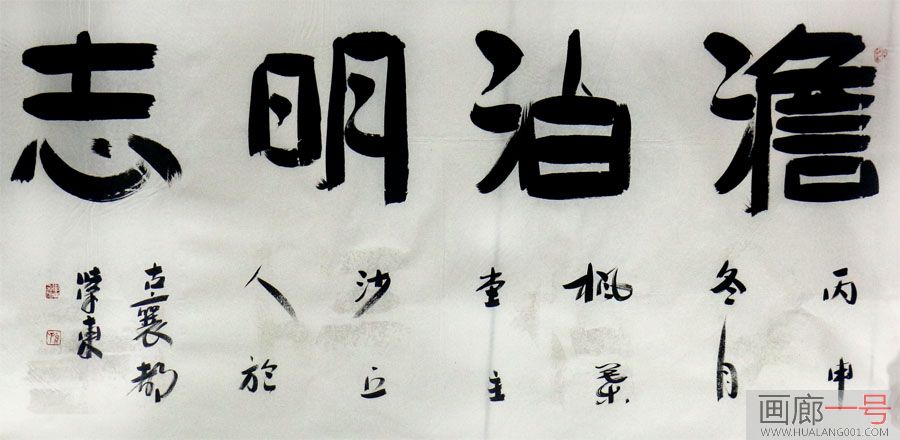 澹泊明志
丙申
冬月
楓葉
堂主
沙丘
人於
古襄都
榮東
画廊一号
WWW.HUALANG001.COM